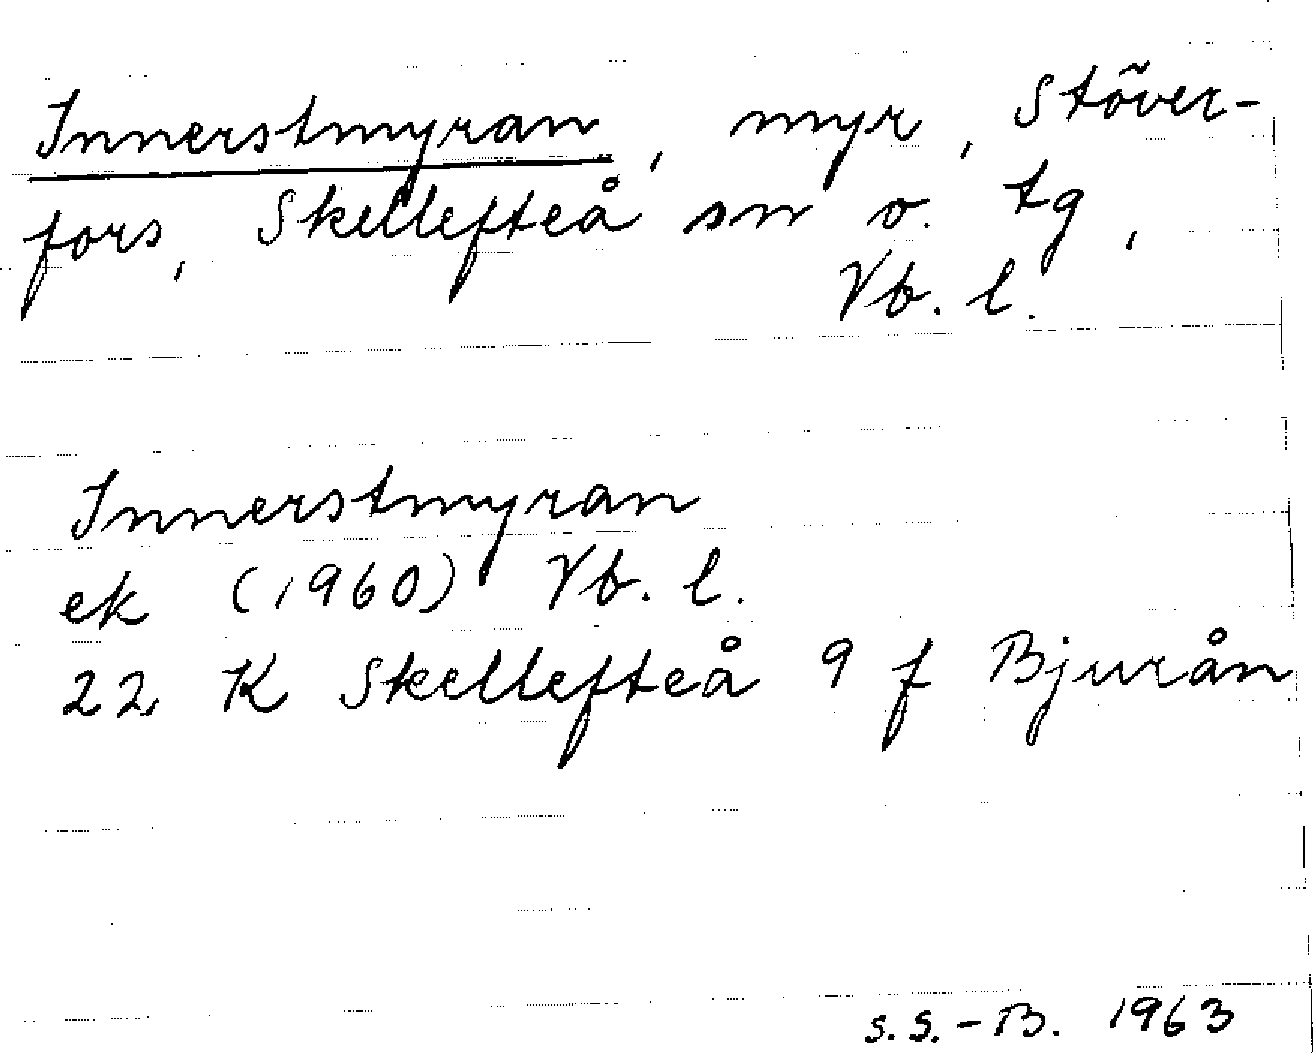 Innerstmyran, myr, Stöver-
fors, Skellefteå sn o. tg,
Vb. l.
Innerstmyran
ek (1960) Vb. l.
22 K Skellefteå 9 f Bjurån
S.S.-B. 1963